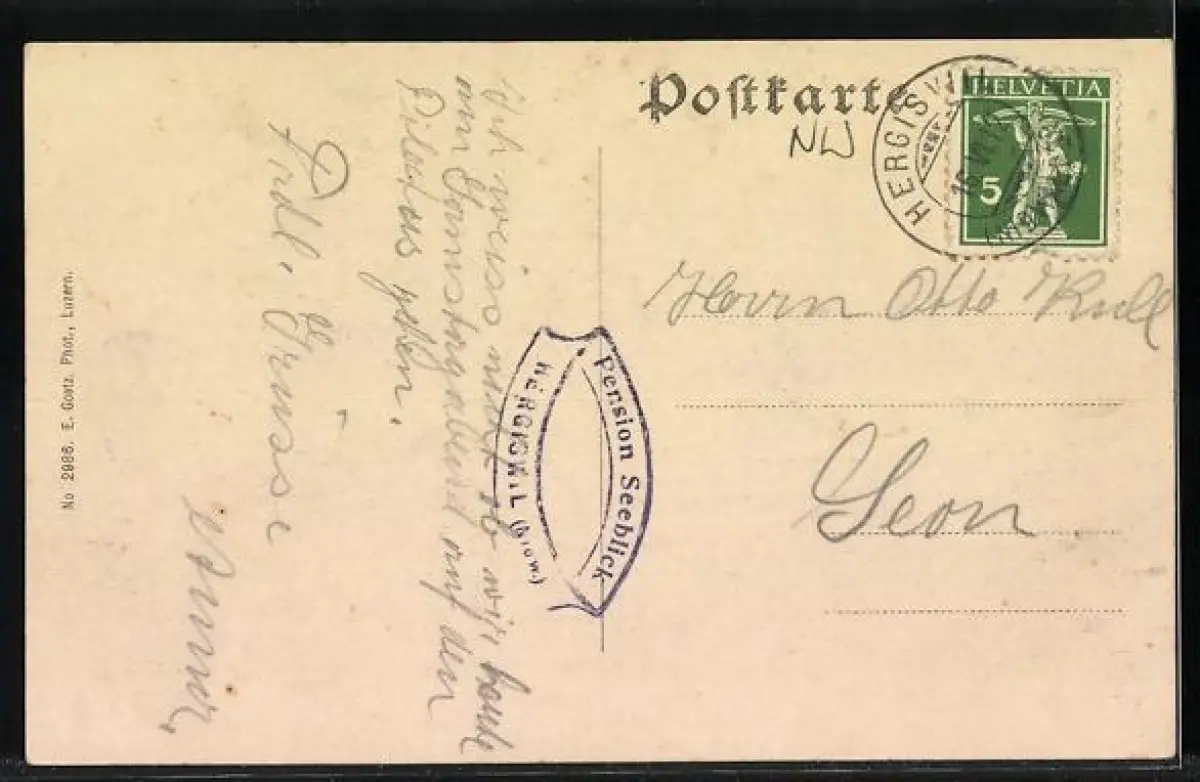 Postkarte
NW
HELVETIA
5
HERGISWIL
Herrn Otto Kull
Seon
Pension Seeblick
HERGISWIL (
Ich weiss nicht ob wir heute
am Samstagabend auf den
Pilatus gehen.
Frdl. Grüsse
No 2986. E. Goetz. Phot., Luzern.